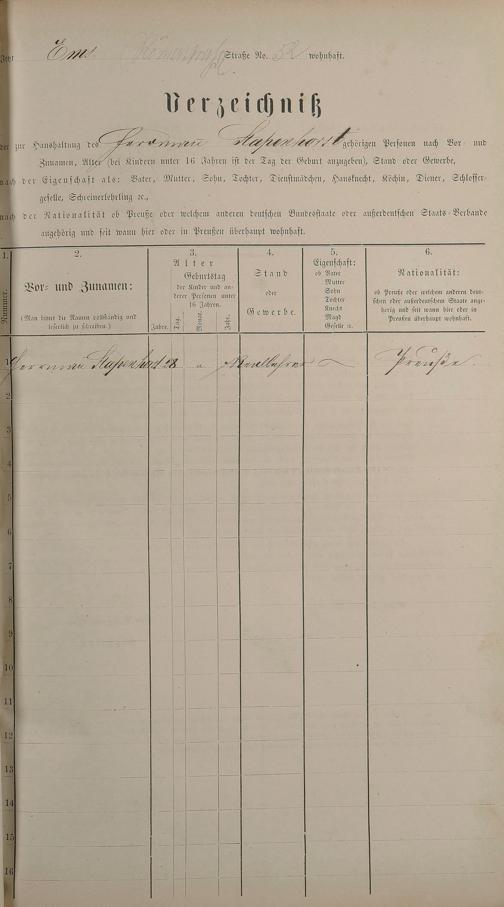 Ems Römerstraße Straße No. 52 wohnhaft.
Verzeichniß
der zur Haushaltung des Herrman Stapenhorst gehörigen Personen nach Vor- und
Zunamen, Alter (bei Kindern unter 16 Jahren ist der Tag der Geburt anzugeben), Stand oder Gewerbe,
nach der Eigenschaft als: Vater, Mutter, Sohn, Tochter, Dienstmädchen, Hausknecht, Köchin, Diener, Schlosser-
geselle, Schreinerlehrling ꝛc.,
nach der Nationalität ob Preuße oder welchem anderen deutschen Bundesstaate oder außerdeutschen Staats-Verbande
angehörig und seit wann hier oder in Preußen überhaupt wohnhaft.
1.
Nummer.
2.
Vor- und Zunamen:
(Man bittet die Namen vollständig und
leserlich zu schreiben.)
3.
Alter
Geburtstag
der Kinder und an-
derer Personen unter
16 Jahren.
Jahre.
Tag.
Monat.
Jahr.
4.
Stand
oder
Gewerbe.
5.
Eigenschaft:
ob Vater
Mutter
Sohn
Tochter
Knecht
Magd
Geselle ꝛc.
6.
Nationalität:
ob Preuße oder welchem anderen deut-
schen oder außerdeutschen Staate ange-
hörig und seit wann hier oder in
Preußen überhaupt wohnhaft.
1 Herrman Stapenhorst 28 Reallehrer Preuße.
2
3
4
5
6
7
8
9
10
11
12
13
14
15
16